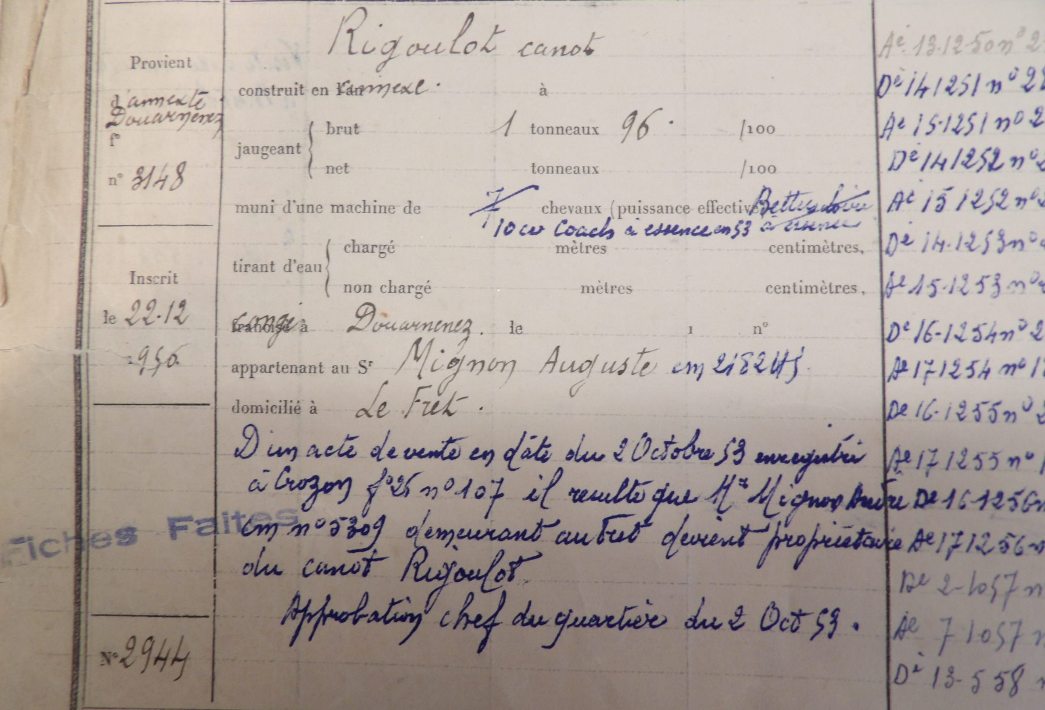 Rigoulot canot
Provient
d'annexe
Douarnenez
f°
n° 3148
Inscrit
le 22-12
N° 2944
construit en l'an annexe. à
jaugeant brut 1 tonneaux 96. /100
net tonneaux /100
muni d'une machine de 7 chevaux (puissance effective
10 cv Coach a essence en 53 a essence
tirant d'eau chargé mètres centimètres,
non chargé mètres centimètres,
francisé congé à Douarnenez. le n°
appartenant au Sr Mignon Auguste
domicilié à Le Fret.
D'un acte de vente en date du 2 Octobre 53 enregistré
à Crozon f° 25 n° 107 il resulte que Mr Mignon André
cm n° 5309 demeurant au Fret devient propriétaire
du canot Rigoulot
Approbation chef du quartier du 2 Oct 53.
Fiches Faites
Ae 13.12 50 n° 2
De 14 12 51 n° 22
Ae 15-12 51 n° 2
De 14 12 52 n°
Ae 15 12 52 n°
De 14-12 53 n°
Ae 15-12 53 n°
De 16-12 54 n° 2
Ae 17 12 54 n° 1
De 16-12 55 n° 2
Ae 17 12 55 n° 1
De 16-12 56 n
Ae 17 12 56 n
De 2-10 57 n
Ae 7 10 57 n
De 13-5 58 n